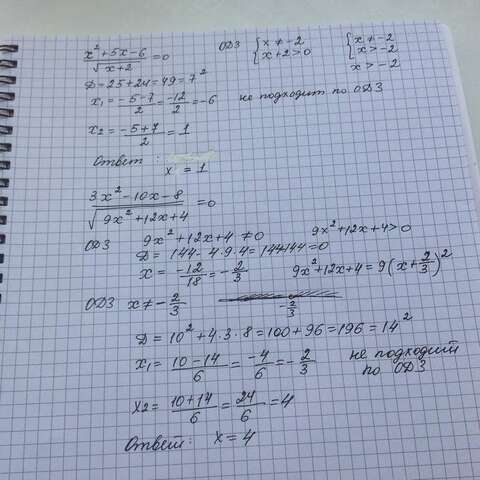 (x² + 5x - 6)/√(x+2) = 0   ОДЗ {x ≠ -2   {x ≠ -2
{x + 2 > 0   {x > -2
x > -2
D = 25 + 24 = 49 = 7²
x₁ = (-5-7)/2 = -12/2 = -6   не подходит по ОДЗ
x₂ = (-5+7)/2 = 1
Ответ :
x = 1
(3x² - 10x - 8)/√(9x² + 12x + 4) = 0
ОДЗ   9x² + 12x + 4 ≠ 0   9x² + 12x + 4 > 0
D = 144 - 4·9·4 = 144-144 = 0
x = -12/18 = -2/3   9x² + 12x + 4 = 9(x + 2/3)²
ОДЗ   x ≠ -2/3   -2/3
D = 10² + 4·3·8 = 100 + 96 = 196 = 14²
x₁ = (10-14)/6 = -4/6 = -2/3   не подходит
по ОДЗ
x2 = (10+14)/6 = 24/6 = 4
Ответ: x = 4